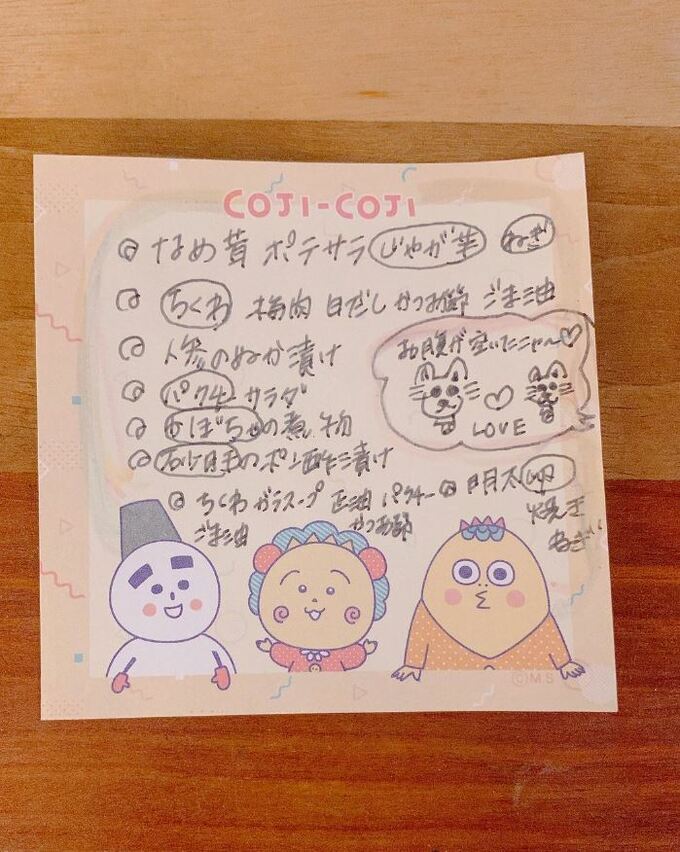 COJI-COJI
なめ茸 ポテサラ じゃが芋 ねぎ
ちくわ 梅肉 白だし かつお節 ごま油
人参のぬか漬け
お腹が空いたニャ〜♡
パクチーサラダ
LOVE
かぼちゃの煮物
砂肝のポン酢漬け
ちくわ ガラスープ 正油 パクチー
ごま油 かつお節
明太卵焼き
ねぎ
©M.S